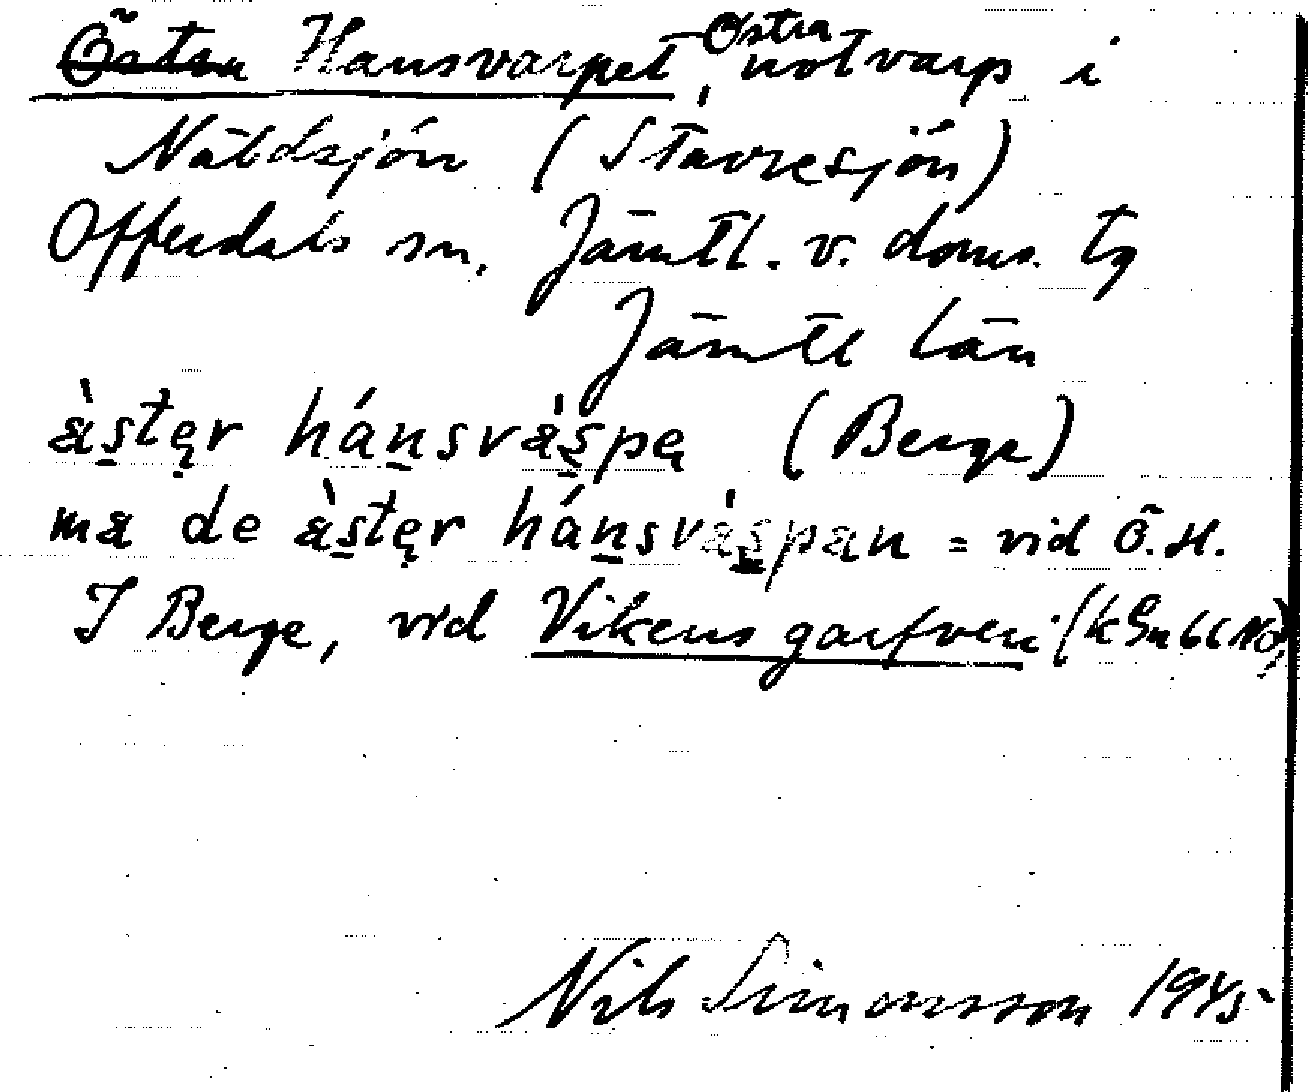 Östra Hansvarpet, Östra notvarp i
Näldsjön (Stavresjön)
Offerdals sn. Jämtl. v. doms. tg
Jämtl län
àstęr hánsvàspę (Berge)
ma de àstęr hánsvàspan = vid Ö.H.
I Berge, vid Vikens garfveri
Nils Simonsson 1945